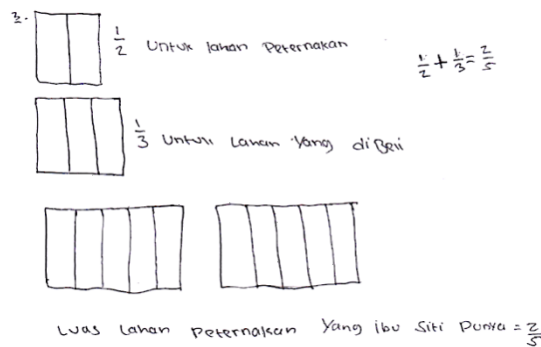 2.
1/2 Untuk lahan Peternakan
1/2 + 1/3 = 2/5
1/3 Untuk Lahan Yang diBeri
Luas Lahan Peternakan Yang ibu Siti Punya = 2/5